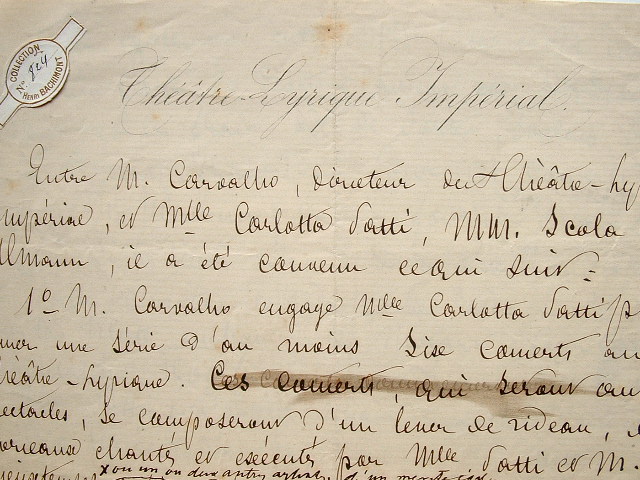 COLLECTION
No 924
Henri BACHIMONT
Théâtre-Lyrique Impérial.
Entre M. Carvalho, directeur du Théâtre-Ly
mpérial, et Mlle Carlotta Patti, MM. Scola
llmann, il a été convenu ce qui suit:
1o M. Carvalho engage Mlle Carlotta Patti p
une série d'au moins Sise concerts au
héâtre-Lyrique. Ces concerts, qui seront
ectacles, se composeront d'un lever de rideau,
morceaux chantés et exécutés par Mlle Patti et M.
x ou un ou deux autres artistes, d'un